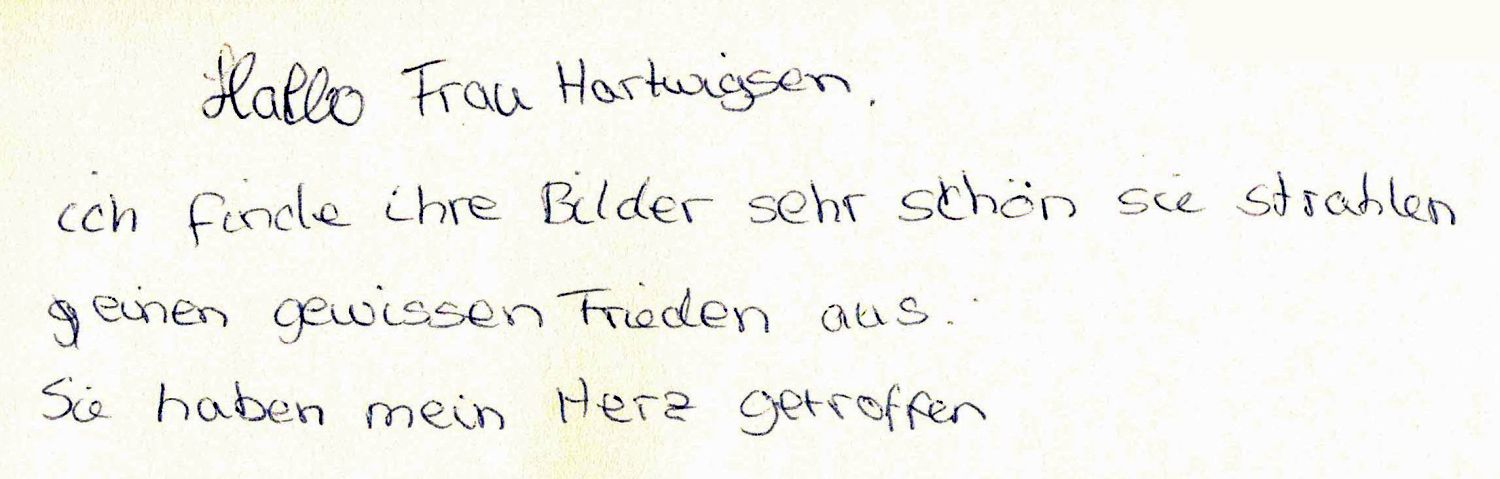 Hallo Frau Hartwigsen,
ich finde ihre Bilder sehr schön sie strahlen
einen gewissen Frieden aus.
Sie haben mein Herz getroffen